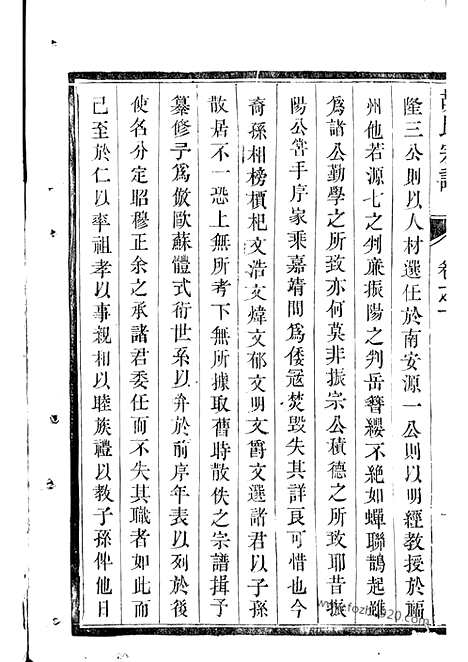 黃氏宗譜 卷之一
隆三公則以人材選任於南安源一公則以明經教授於福
州他若源七之判亷振陽之判岳簪纓不絶如蟬聯鵲起雖
爲諸公勤學之所致亦何莫非振宗公積德之所致耶昔振
陽公嘗手序家乘嘉靖間爲倭冦焚毁失其詳良可惜也今
裔孫相榜檟杞文浩文煒文郁文明文爵文選諸君以子孫
散居不一恐上無所考下無所據取舊時散佚之宗譜揖予
纂修予爲倣歐蘇體式衍世系以弁於前序年表以列於後
使名分定昭穆正余之承諸君委任而不失其職者如此而
已至於仁以率祖孝以事親相以睦族禮以教子孫俾他日
www.fozhu920.com